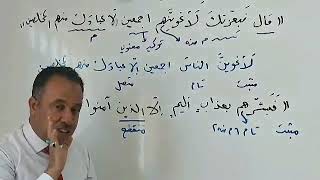 « قال فبعزتك لأغوينهم أجمعين إلا عبادك منهم المخلصين »
م م منه توكيد معنوي م
لأغوين الناس أجمعين إلا عبادك منهم المخلصين
مثبت تام متصل
« فبشرهم بعذاب أليم إلا الذين آمنوا
مثبت تام م منه منقطع